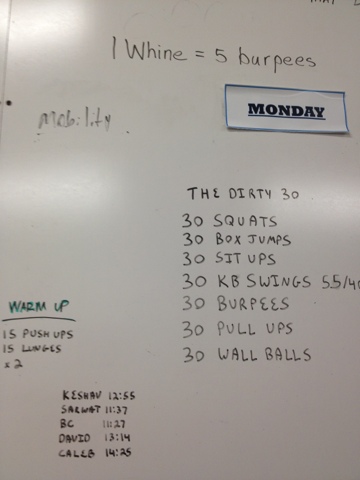 1 Whine = 5 burpees
mobility
MONDAY
THE DIRTY 30
30 SQUATS
30 BOX JUMPS
30 SIT UPS
30 KB SWINGS 55/40
30 BURPEES
30 PULL UPS
30 WALL BALLS
WARM UP
15 PUSH UPS
15 LUNGES
x 2
KESHAV 12:55
SARWAT 11:37
BC 11:27
DAVID 13:14
CALEB 14:25